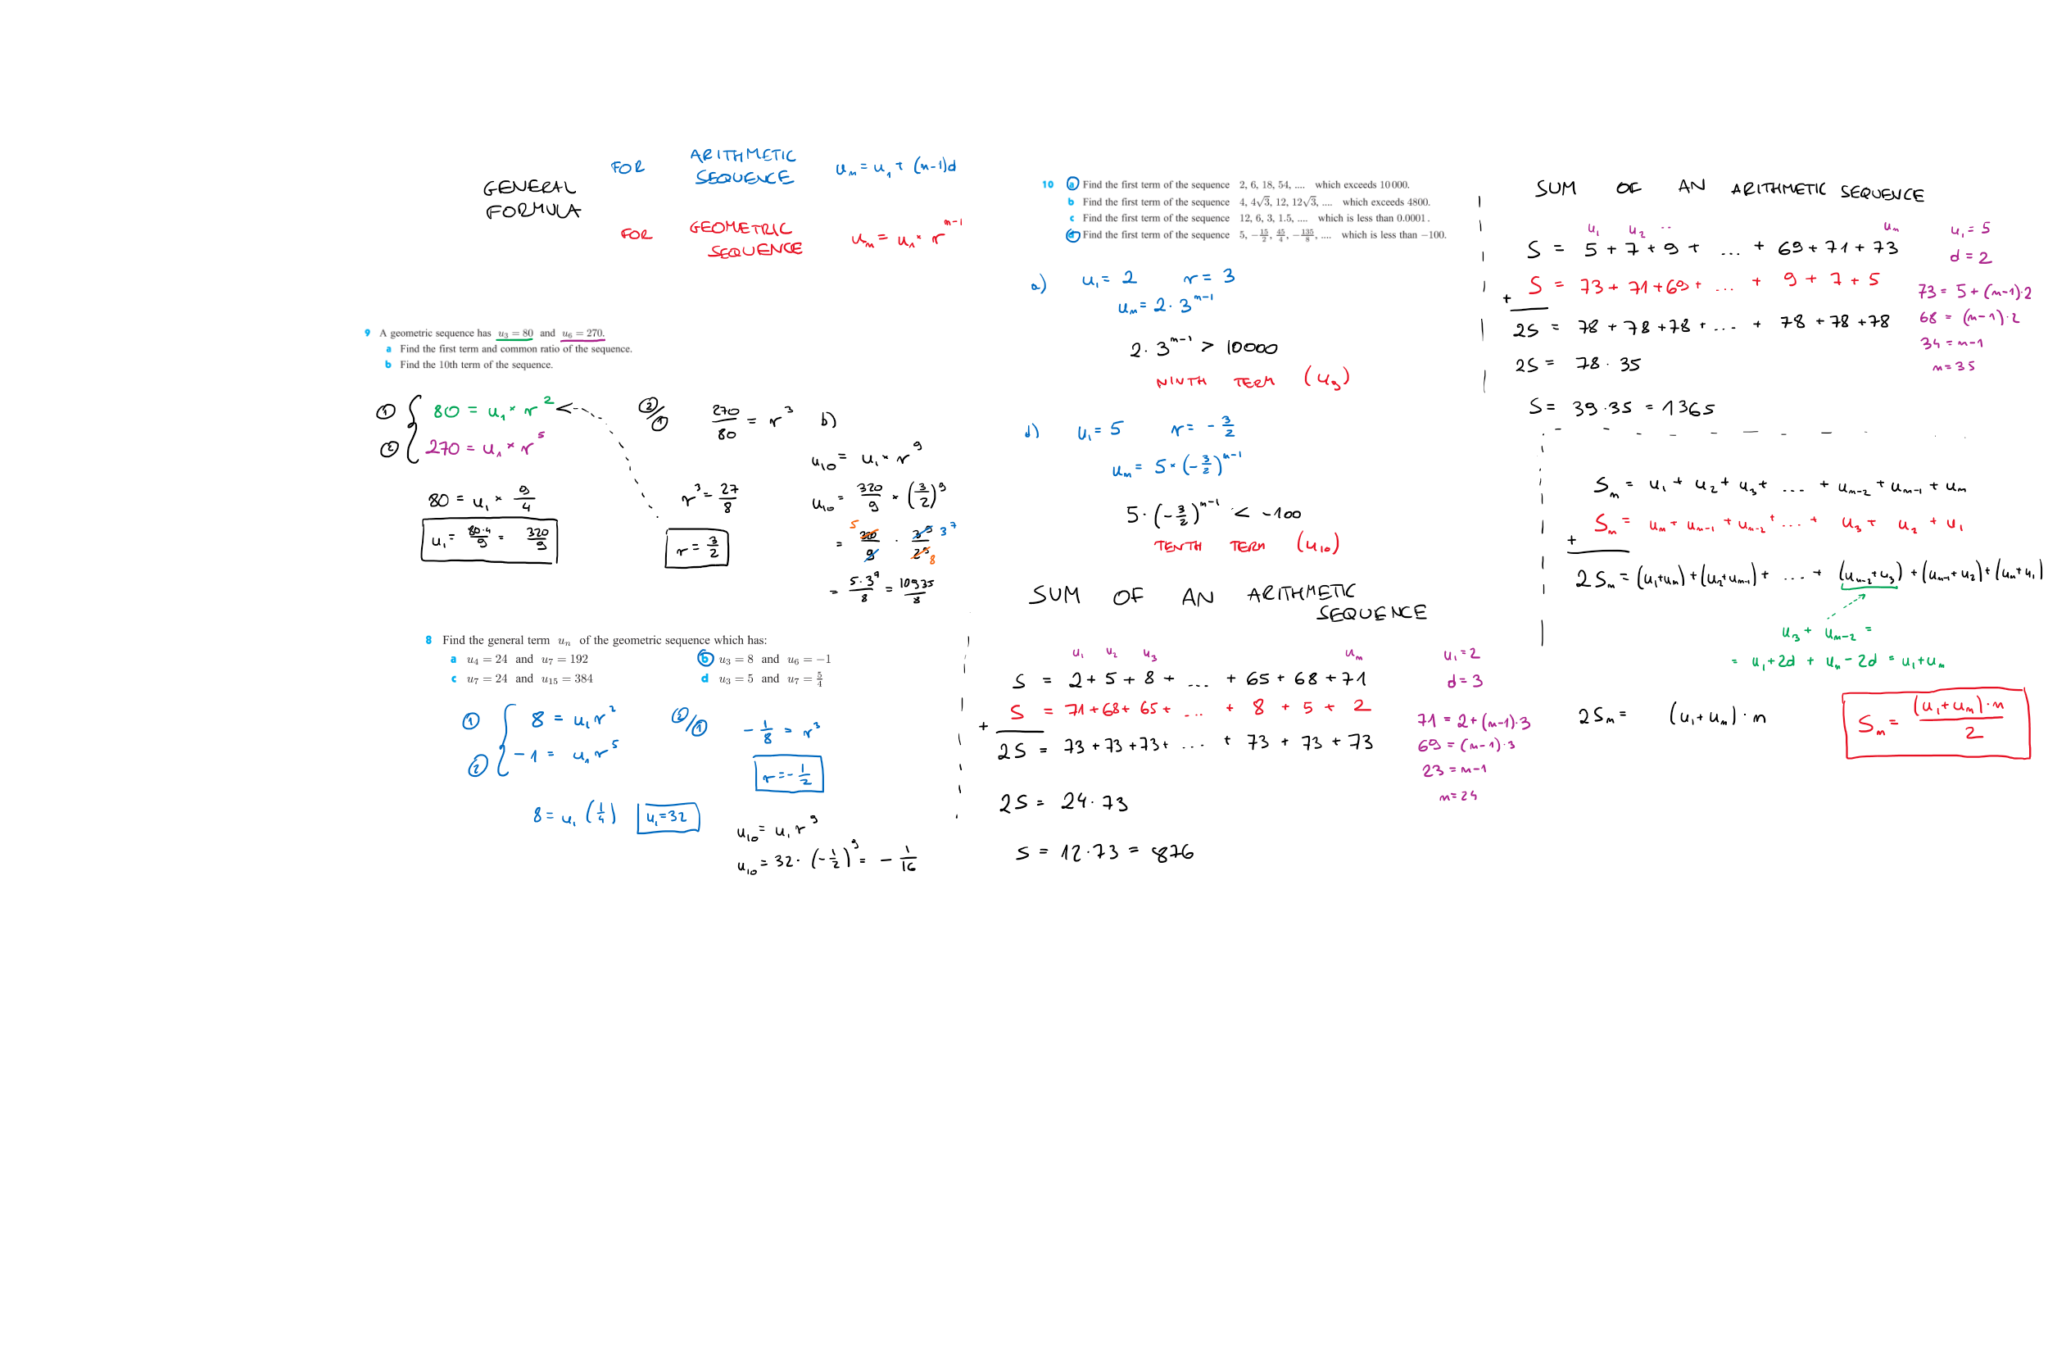 GENERAL FORMULA
FOR ARITHMETIC SEQUENCE uₙ = u₁ + (n-1)d
FOR GEOMETRIC SEQUENCE uₙ = u₁ × r^(n-1)
9 A geometric sequence has u₃ = 80 and u₆ = 270.
a Find the first term and common ratio of the sequence.
b Find the 10th term of the sequence.
① 80 = u₁ × r²
② 270 = u₁ × r⁵
②/① 270/80 = r³
r³ = 27/8
r = 3/2
80 = u₁ × 9/4
u₁ = 80·4/9 = 320/9
b)
u₁₀ = u₁ × r⁹
u₁₀ = 320/9 × (3/2)⁹
= 320/9 · 3⁹/2⁹ 5 3⁷ 8
= 5·3⁷/8 = 10935/8
8 Find the general term uₙ of the geometric sequence which has:
a u₄ = 24 and u₇ = 192
b u₃ = 8 and u₆ = −1
c u₇ = 24 and u₁₅ = 384
d u₃ = 5 and u₇ = 5/4
① 8 = u₁r²
② -1 = u₁r⁵
②/① -1/8 = r³
r = -1/2
8 = u₁(1/4)
u₁ = 32
u₁₀ = u₁r⁹
u₁₀ = 32·(-1/2)⁹ = -1/16
10 a Find the first term of the sequence 2, 6, 18, 54, .... which exceeds 10 000.
b Find the first term of the sequence 4, 4√3, 12, 12√3, .... which exceeds 4800.
c Find the first term of the sequence 12, 6, 3, 1.5, .... which is less than 0.0001.
d Find the first term of the sequence 5, −15/2, 45/4, −135/8, .... which is less than −100.
a) u₁ = 2 r = 3
uₙ = 2·3^(n-1)
2·3^(n-1) > 10000
NINTH TERM (u₉)
d) u₁ = 5 r = -3/2
uₙ = 5×(-3/2)^(n-1)
5·(-3/2)^(n-1) < -100
TENTH TERM (u₁₀)
SUM OF AN ARITHMETIC SEQUENCE
u₁ u₂ u₃ uₙ
S = 2 + 5 + 8 + ... + 65 + 68 + 71
+ S = 71 + 68 + 65 + ... + 8 + 5 + 2
2S = 73 + 73 + 73 + ... + 73 + 73 + 73
2S = 24·73
S = 12·73 = 876
u₁ = 2
d = 3
71 = 2 + (n-1)·3
69 = (n-1)·3
23 = n-1
n = 24
SUM OF AN ARITHMETIC SEQUENCE
u₁ u₂ .. uₙ
S = 5 + 7 + 9 + ... + 69 + 71 + 73
+ S = 73 + 71 + 69 + ... + 9 + 7 + 5
2S = 78 + 78 + 78 + ... + 78 + 78 + 78
2S = 78·35
S = 39·35 = 1365
u₁ = 5
d = 2
73 = 5 + (n-1)·2
68 = (n-1)·2
34 = n-1
n = 35
Sₙ = u₁ + u₂ + u₃ + ... + uₙ₋₂ + uₙ₋₁ + uₙ
+ Sₙ = uₙ + uₙ₋₁ + uₙ₋₂ + ... + u₃ + u₂ + u₁
2Sₙ = (u₁+uₙ) + (u₂+uₙ₋₁) + ... + (uₙ₋₂+u₃) + (uₙ₋₁+u₂) + (uₙ+u₁)
u₃ + uₙ₋₂ =
= u₁+2d + uₙ-2d = u₁+uₙ
2Sₙ = (u₁+uₙ)·n
Sₙ = (u₁+uₙ)·n/2